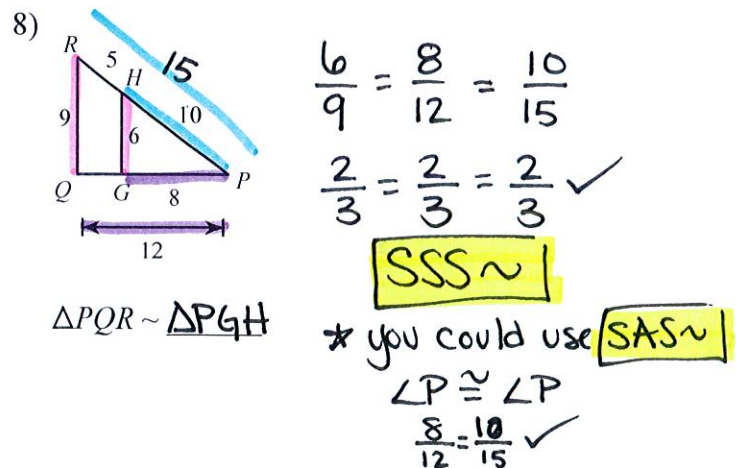 8)
R
5
15
H
10
9
6
Q
G
8
P
12
ΔPQR ~ ΔPGH
6/9 = 8/12 = 10/15
2/3 = 2/3 = 2/3 ✓
SSS~
* you could use SAS~
∠P ≅ ∠P
8/12 = 10/15 ✓